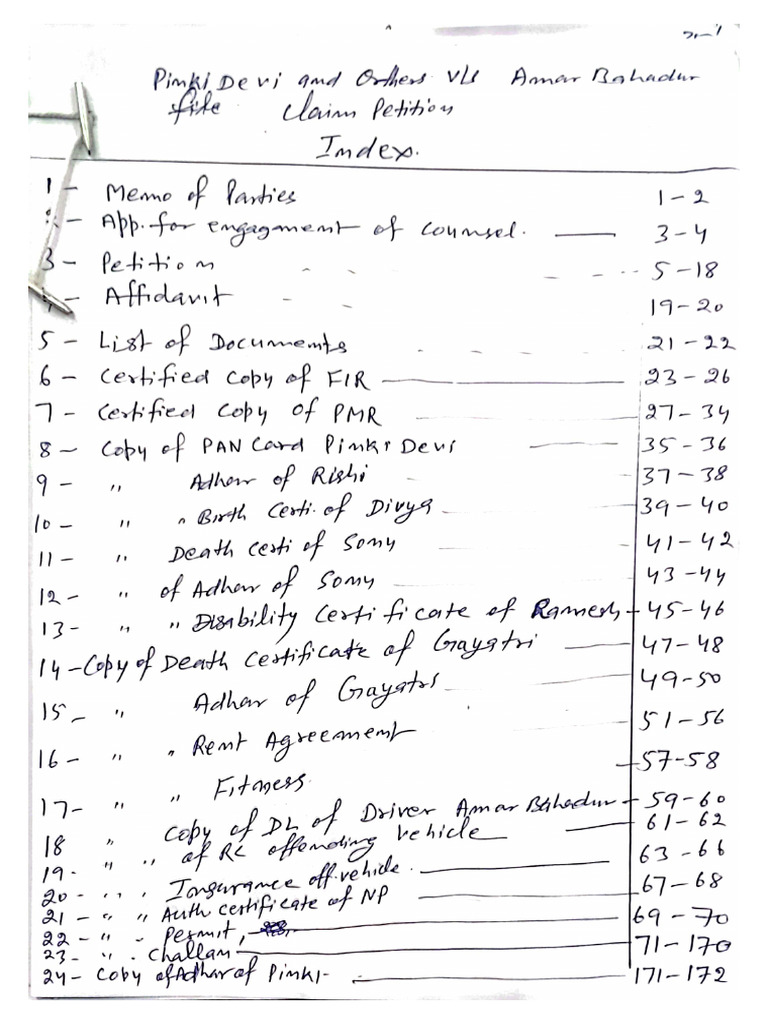 Pinki Devi and Orthers V/s Amar Bahadur
file Claim Petition
Index.
1 - Memo of Parties 1-2
2 - App. for engagament of counsel. — 3-4
3 - Petition - - - - -- 5-18
4 - Affidavit - - 19-20
5 - List of Documents - - - - 21-22
6 - Certified Copy of FIR — 23-26
7 - Certified Copy of PMR — 27-34
8 - Copy of PAN Card Pinki Devi — 35-36
9 - " Adhar of Rishi — 37-38
10 - " " Birth Certi. of Divya — 39-40
11 - " Death Certi of Somy — 41-42
12 - " of Adhar of Somy — 43-44
13 - " " Disability Certificate of Ramesh - 45-46
14 - Copy of Death Certificate of Gayatri — 47-48
15 - " Adhar of Gayatri — 49-50
16 - " " Rent Agreement 51-56
17 - " " Fitness 57-58
18 " Copy of DL of Driver Amar Bahadur - 59-60
19 - " " of RC offending Vehicle — 61-62
20 - " " Insurance off. vehicle. — 63-66
21 - " " Auth certificate of NP — 67-68
22 - " - Permit, — 69-70
23 - " - Challan — 71-170
24 - Copy of Adhar of Pinki - — 171-172